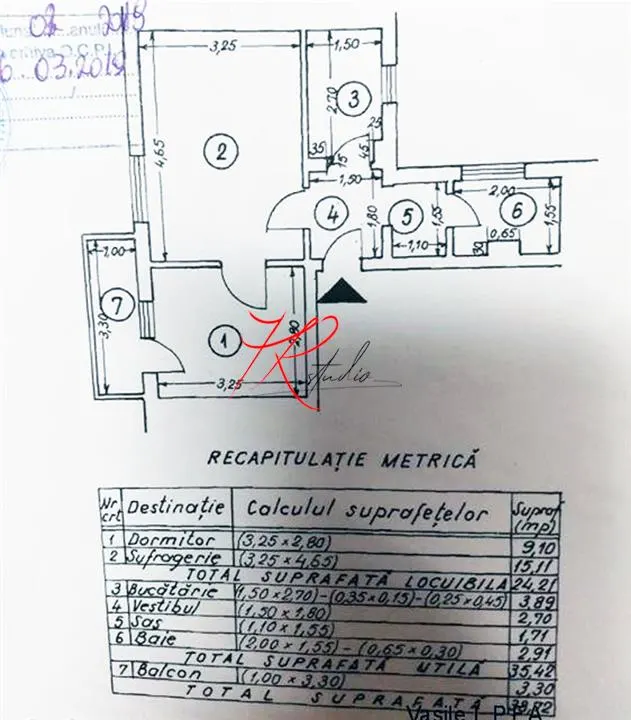 02 2019
anula
O.C.P.I.
03.2019
3,25
1,50
2,70
3
35
15
45
25
4,65
2
1,50
4
1,80
5
1,55
1,10
2,00
6
1,55
0,65
30
1,00
7
3,30
1
2,80
3,25
studio
RECAPITULAȚIE METRICĂ
Nr. crt Destinație Calculul suprafețelor Supraf (mp)
1 Dormitor (3,25 × 2,80) 9,10
2 Sufragerie (3,25 × 4,65) 15,11
TOTAL SUPRAFAȚĂ LOCUIBILĂ 24,21
3 Bucătărie (1,50 × 2,70) - (0,35 × 0,15) - (0,25 × 0,45) 3,89
4 Vestibul (1,50 × 1,80) 2,70
5 Sas (1,10 × 1,55) 1,71
6 Baie (2,00 × 1,55) - (0,65 × 0,30) 2,91
TOTAL SUPRAFAȚĂ UTILĂ 35,42
7 Balcon (1,00 × 3,30) 3,30
TOTAL SUPRAFAȚĂ 38,72
Vasile